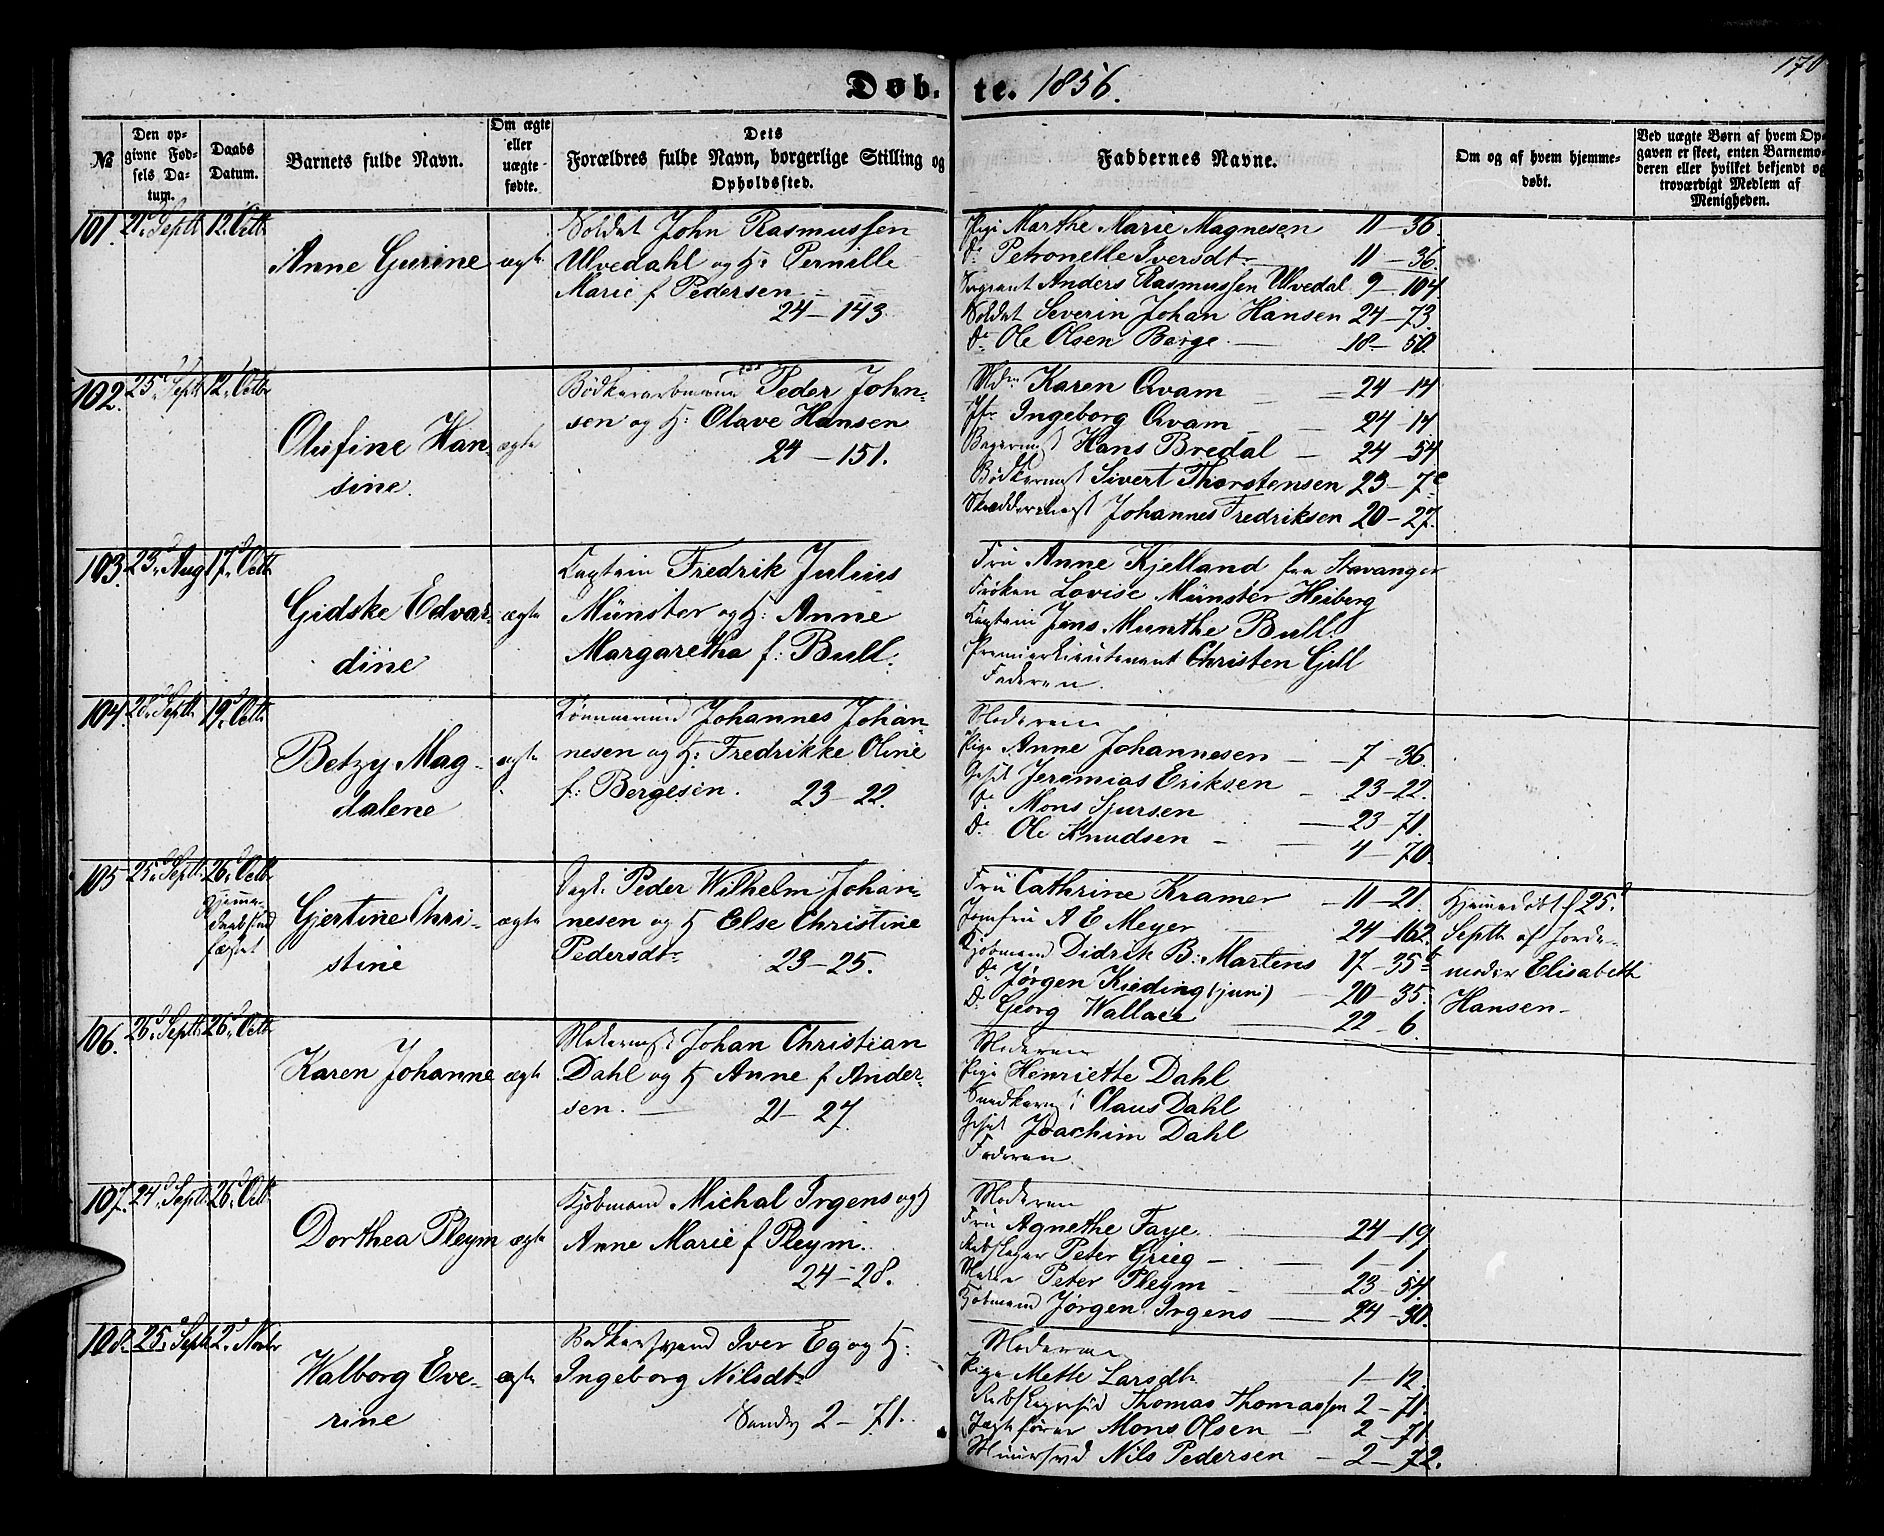 170
Døb- te. 1856.
№
Den opgivne Fødsels Datum.
Daabs Datum.
Barnets fulde Navn.
Om ægte eller uægte fødte.
Dets Forældres fulde Navn, borgerlige Stilling og Opholdssted.
Faddernes Navne.
Om og af hvem hjemmedøbt.
Ved uægte Børn af hvem Opgaven er skeet, enten Barnemoderen eller hvilket bekjendt og troværdigt Medlem af Menigheden.
101. 21. Septb 12. Octb
Anne Gurine ægte
Soldat John Rasmussen
Ulvedahl og H: Pernille
Marie f Pedersen
24 – 143
Pige Marthe Marie Magnesen 11 – 36
Do Petronelle Iversdtr 11 – 36.
Sergeant Anders Rasmussen Ulvedal 9 – 104
Soldat Severin Johan Hansen 24 – 73
Do Ole Olsen Børge 18 – 50.
102. 25. Septb 12. Octbr
Olufine Hansine. ægte
Peder Johnsen
og H: Olave Hansen
24 – 151.
Karen Qvam 24 – 14
Jfr Ingeborg Qvam 24 – 14
Bagermst Hans Bredal 24 – 54
Bødkermst Sivert Thorstensen 23 – 7c
Skræddermst Johannes Fredriksen 20 – 27.
103. 23. Aug 17. Octb
Gidske Edvardine ægte
Captain Fredrik Julius
Münster og H: Anne
Margaretha f: Bull.
Fru Anne Kjelland fra Stavanger
Frøken Lovise Münster Heiberg
Captain Jens Munthe Bull
Premierlieutenant Christen Gill
Faderen.
104. 28. Septb 19. Octb
Betzy Magdalene ægte
Tømmermd Johannes Johannesen
og H: Fredrikke Oline
f: Bergesen. 23 – 22.
Moderen
Pige Anne Johannesen 7 – 36.
Gesel Jeremias Eriksen 23 – 22.
Do Mons Sjursen 23 – 71.
Do Ole Knudsen 4 – 70.
105 25. Septb 26. Octb
Hjemmedaabsind
Gjertine Christine ægte
Peder Wilhelm Johannesen
og H Else Christine
Pedersdtr 23 – 25.
Fru Cathrine Kramer 11 – 21
Jomfru A E Meyer 24 – 162.
Kjøbmand Didrik B: Martens 17 – 35
Do Jørgen Kieding (juni) 20 – 35.
Do Georg Wallace 22 – 6
Hjemmedøbt d 25.
Septb af Jordemoder Elisabeth
Hansen
106. 26. Septb 26. Octb
Karen Johanne ægte
Malermst Johan Christian
Dahl og H Anne f Andersen.
21 – 27.
Moderen
Pige Henriette Dahl
Snedkerm: Claus Dahl
Gesel Joachim Dahl
Faderen
107. 24. Septb 26. Octb
Dorthea Pleym ægte
Kjøbmand Michal Irgens og H
Anne Marie f Pleym.
24 – 28.
Moderen
Fru Agnethe Faye 24 – 19
Rebslager Peter Grieg 1 – 1
Maler Peter Pleym 23 – 54
Kjøbmand Jørgen Irgens 24 – 30.
108. 25. Septb 2. Novbr
Walborg Everine ægte
Iver Eg og H:
Ingeborg Nilsdtr
Sandv 2 – 71.
Moderen
Pige Mette Larsdtr 1 – 12
Thomas Thomassen 2 – 71.
Jægtfører Mons Olsen 2 – 71.
Muursvd Nils Pedersen 2 – 72.